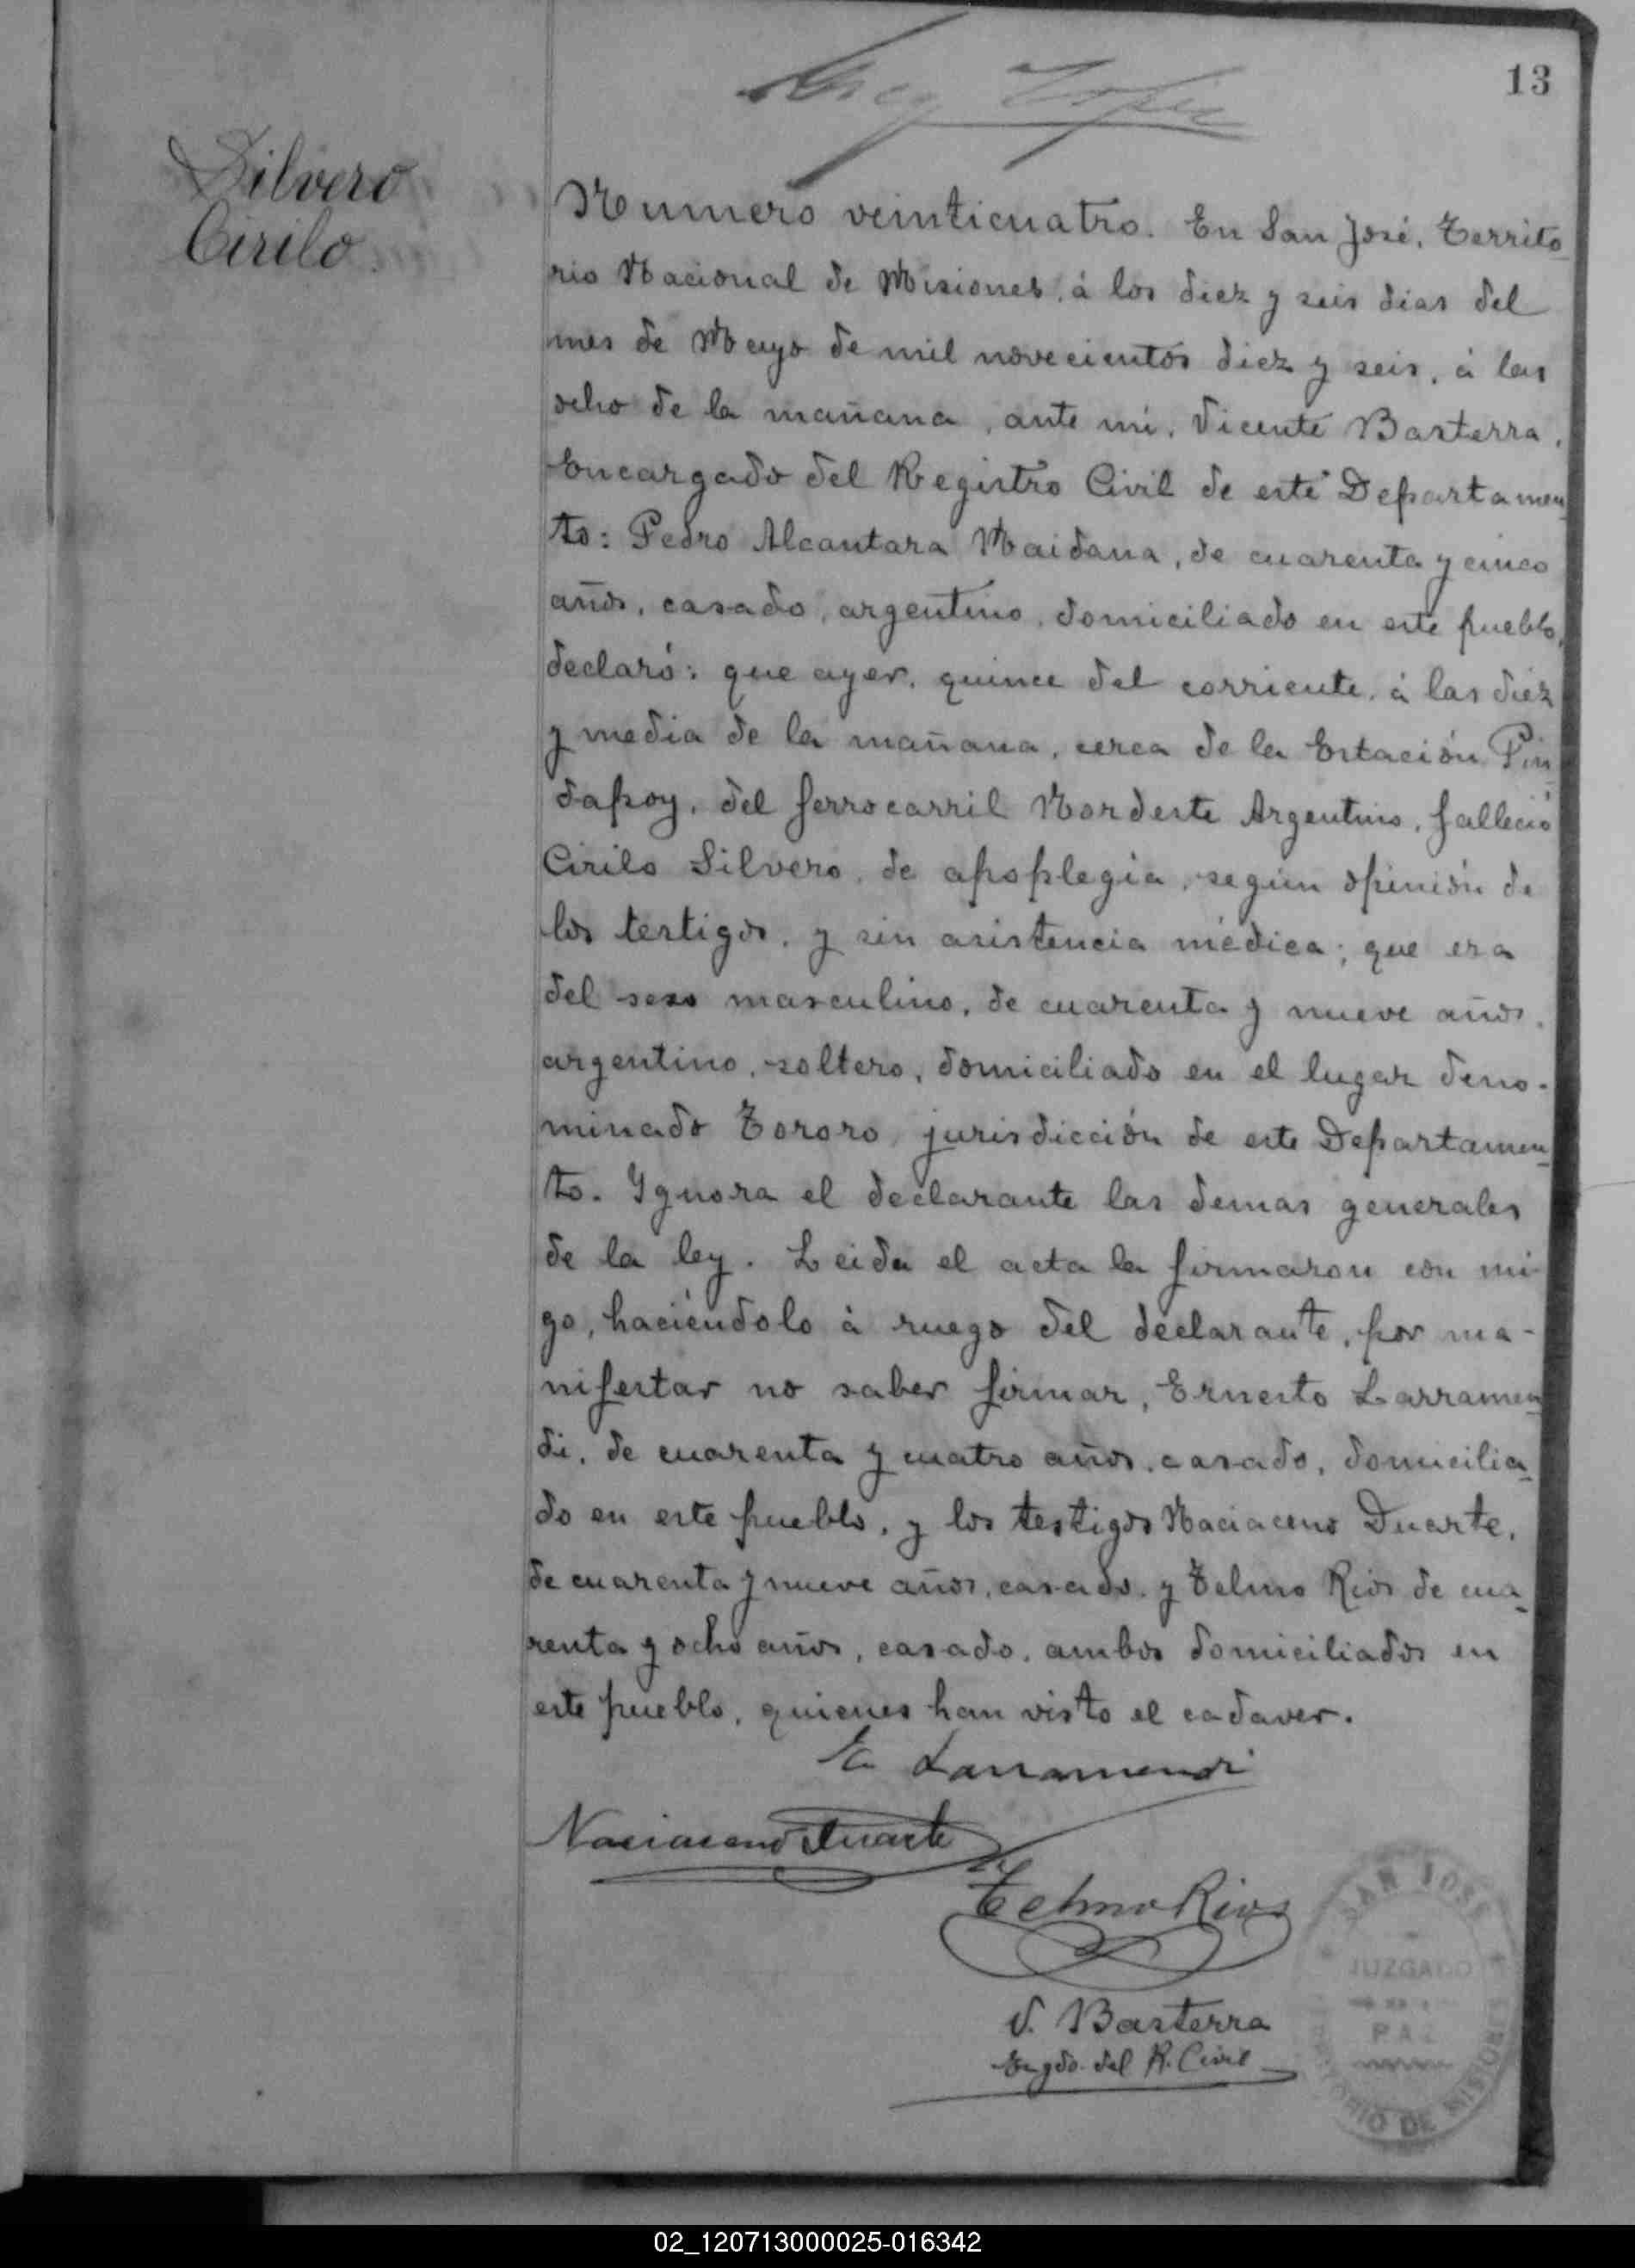 13
Silvero
Cirilo
Numero veinticuatro. En San José, Territo
rio Nacional de Misiones, á los diez y seis dias del
mes de Mayo de mil novecientos diez y seis, á las
ocho de la mañana, ante mi, Vicente Basterra,
Encargado del Registro Civil de este Departamen
to: Pedro Alcantara Maidana, de cuarenta y cinco
años, casado, argentino, domiciliado en este pueblo,
declaró: que ayer, quince del corriente, á las diez
y media de la mañana, cerca de la Estación Pin
dapoy, del ferrocarril Nordeste Argentino, falleció
Cirilo Silvero, de apoplegia, según opinión de
los testigos, y sin asistencia médica; que era
del sexo masculino, de cuarenta y nueve años,
argentino, soltero, domiciliado en el lugar deno-
minado Tororo, jurisdicción de este Departamen
to. Ygnora el declarante las demas generales
de la ley. Leida el acta la firmaron con mi
go, haciéndolo á ruego del declarante, por ma-
nifestar no saber firmar, Ernesto Larramen
di, de cuarenta y cuatro años, casado, domicilia
do en este pueblo, y los testigos Naciaceno Duarte,
de cuarenta y nueve años, casado, y Telmo Rios de cua
renta y ocho años, casado, ambos domiciliados en
este pueblo, quienes han visto el cadaver.
E. Larramendi
Naciaceno Duarte
Telmo Rios
V. Basterra
Engdo. del R. Civil
SAN JOSE
JUZGADO
PAZ
TERRITORIO DE MISIONES
02_120713000025-016342